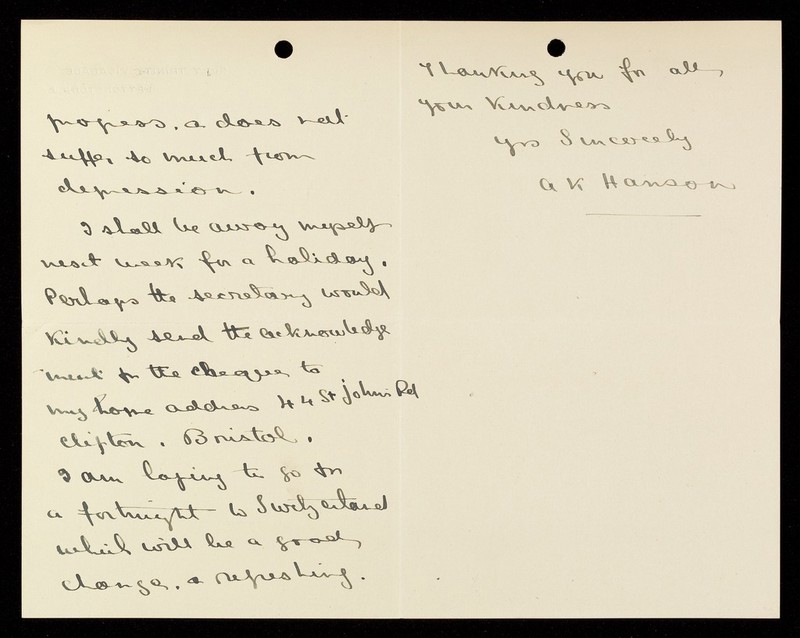 progress, & does not
suffer so much from
depression.
I shall be away myself
next week for a holiday.
Perhaps the secretary would
kindly send the acknowledge
ment for the cheque to
my home address 44 St John's Rd
Clifton. Bristol.
I am hoping to go for
a fortnight to Switzerland
which will be a good
change, & refreshing.
Thanking you for all
your kindness
yrs Sincerely
A K Hanson